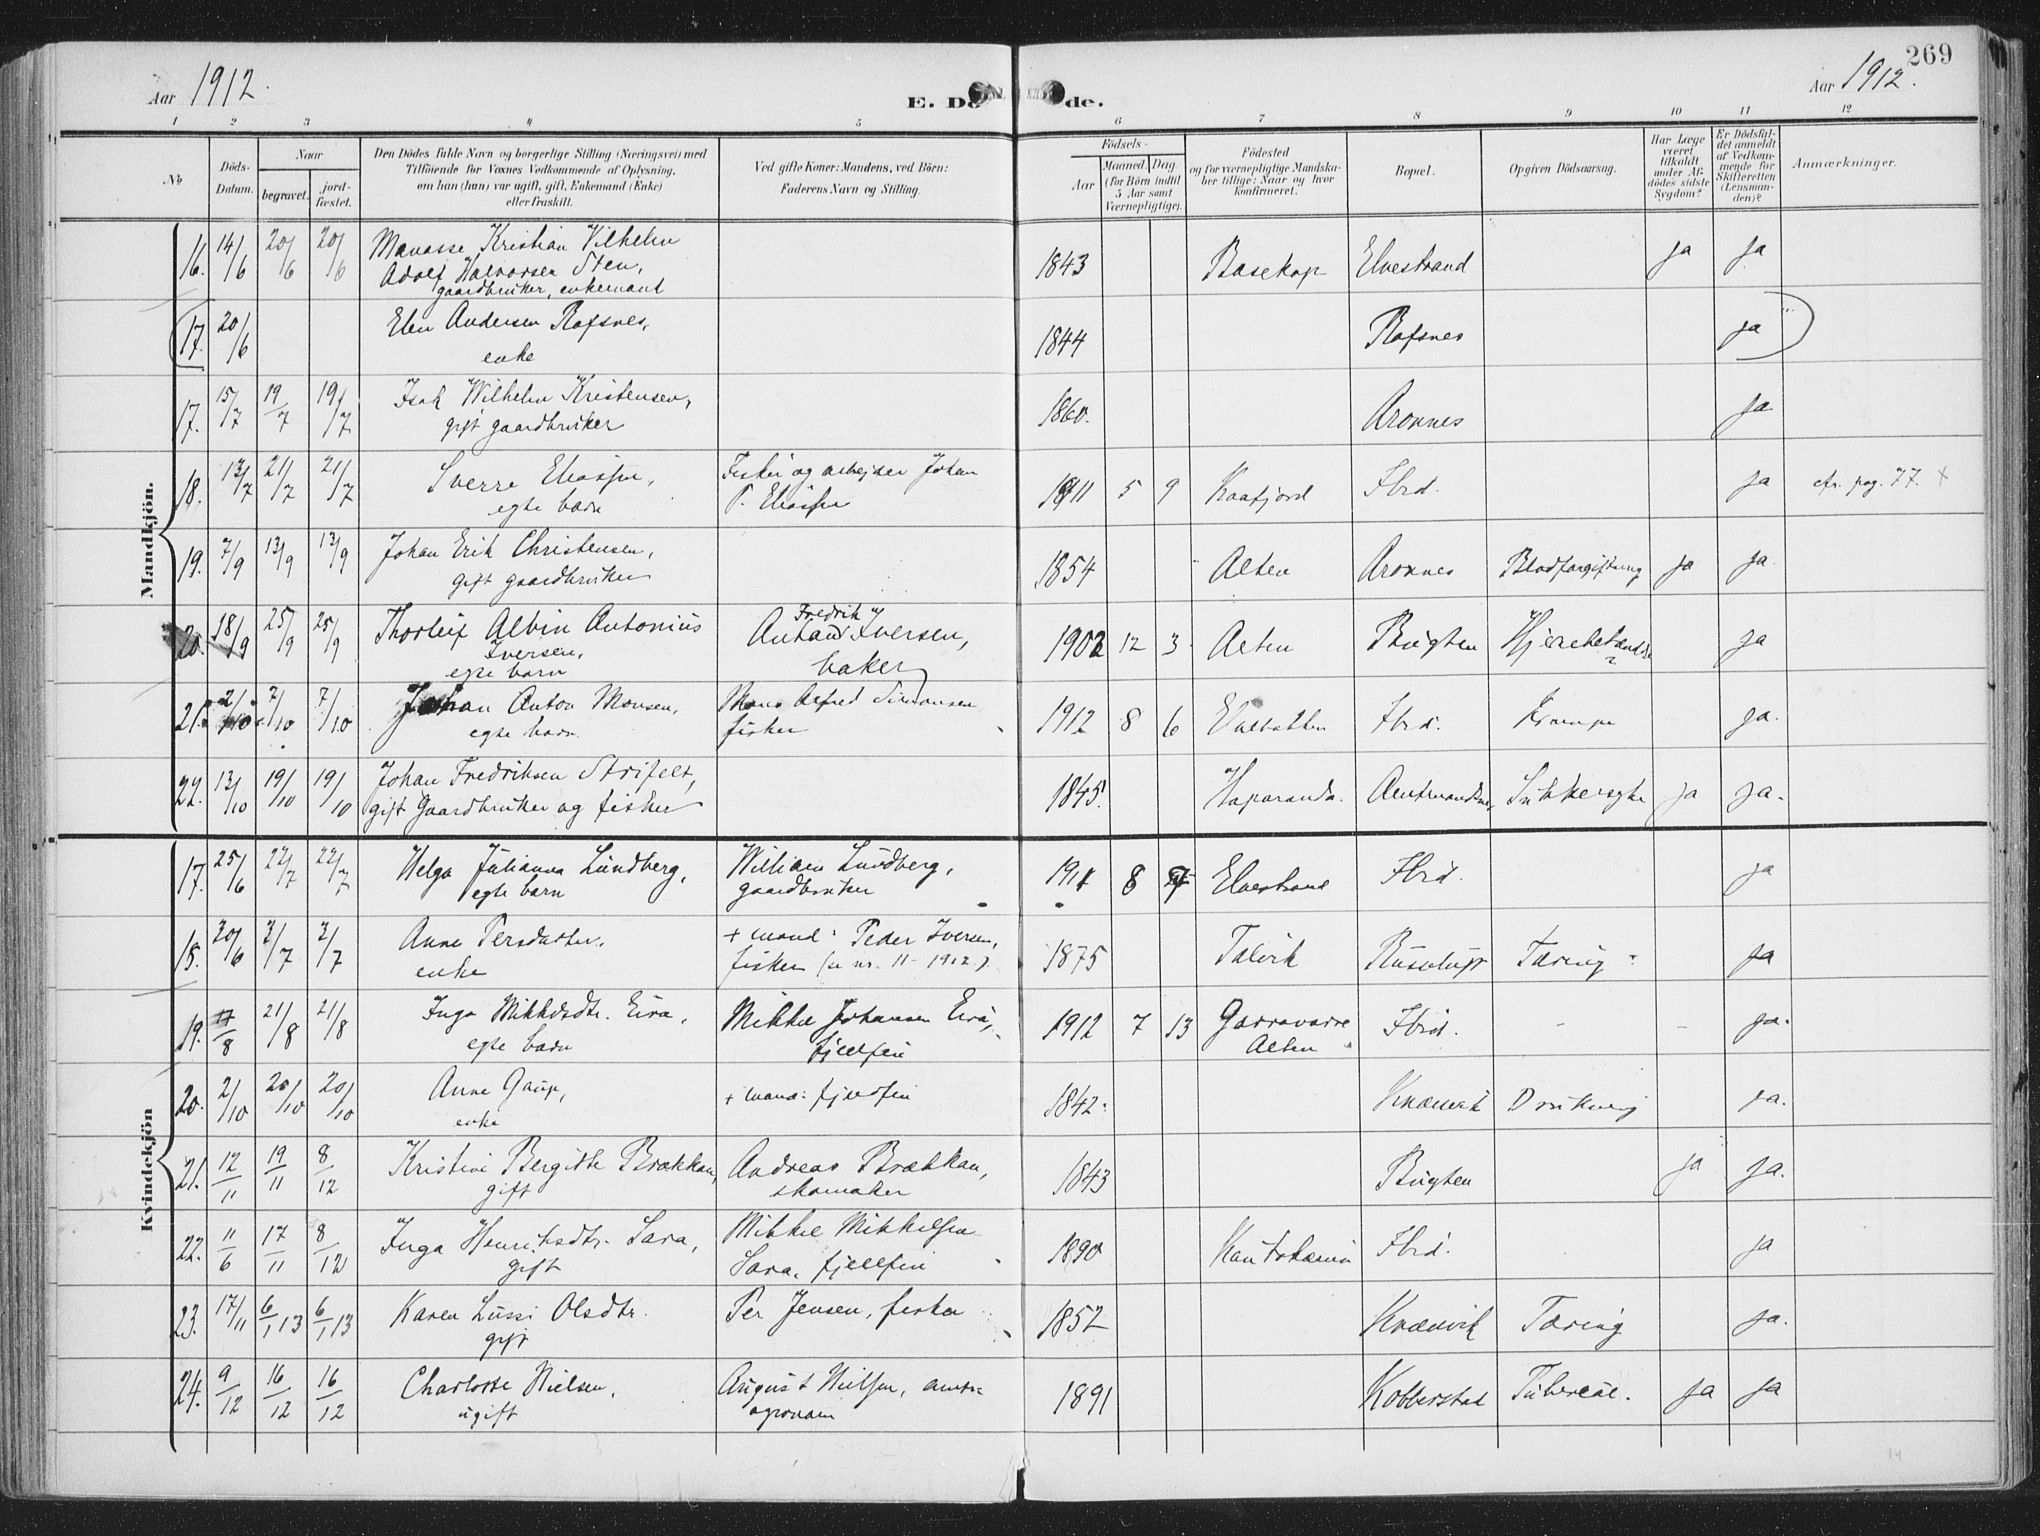 269
Aar 1912. E. Dö de. Aar 1912.
1 2 3 4 5 6 7 8 9 10 11 12
No. Döds-Datum. Naar begravet. jord-fæstet. Den Dödes fulde Navn og borgerlige Stilling (Næringsvei) med Tilföiende for Voxnes Vedkommende af Oplysning, om han (hun) var ugift, gift, Enkemand (Enke) eller fraskilt. Ved gifte Koner: Mandens, ved Börn: Faderens Navn og Stilling. Födsels- Aar Maaned. Dag. (for Börn indtil 5 Aar samt Værnepligtige). Födested og for værnepligtige Mandskaber tillige: Naar og hvor konfirmeret. Bopæl. Opgiven Dödsaarsag. Har Læge været tilkaldt under Afdödes sidste Sygdom? Er Dödsfaldet anmeldt af Vedkommende for Skifteretten (Lensmanden)? Anmærkninger.
Mandkjön.
16. 14/6 20/6 20/6 Manasse Kristian Vilhelm 1843 Bosekop Elvestrand ja ja
Adolf Halvorsen Sten,
gaardbruker, enkemand
(17. 20/6 Elen Andersen Rafsnes, 1844 Rafsnes ja)
enke
17. 15/7 19/7 19/7 Isak Wilhelm Kristensen, 1860. Aronnes ja
gift gaardbruker
18. 13/7 21/7 21/7 Sverre Eliassen, Fisker og arbejder Johan 1911 5 9 Kaafjord Ibid. ja cfr. pag. 77. +
egte barn P. Eliassen
19. 7/9 13/9 13/9 Johan Erik Christensen, 1854 Alten Aronnes Blodforgiftning ja ja
gift gaardbruker
20. 18/9 25/9 25/9 Thorleif Albin Antonius Fredrik Iversen, 1902 12 3 Alten Bugten ja
Iversen,
egte barn baker
21. 2/10 7/10 7/10 Johan Anton Monsen, Mons Alfred Simonsen 1912 8 6 Ibid. Krampe ja.
egte barn fisker
22. 13/10 19/10 19/10 Johan Fredriksen Strifelt, 1845. Haparanda. Sukkersyke ja ja.
gift Gaardbruker og fisker
Kvindekjön
17. 25/6 22/7 22/7 Helga Julianna Lundberg, William Lundberg, 1911 8 Elvestrand Ibid. ja
egte barn gaardbruker
18. 30/6 3/7 3/7 Anne Persdatter, + mand: Peder Iversen, 1875 Talvik Tæring ja
enke fisker (se nr. 11 - 1912).
19. 17/8 21/8 21/8 Inga Mikkelsdtr. Eira, Mikkel Johansen Eira, 1912 7 13 Garravarre Ibid. - - ja.
egte barn fjellfin Alten
20. 2/10 20/10 20/10 Anne Gaup, + mand: fjeldfin 1842. Kvænvik Drukning ja.
enke
21. 12/11 19/11 8/12 Kristine Bergitte Brækkan, Andreas Brækkan, 1843 Bugten ja ja.
gift skomaker
22. 11/6 17/11 8/12 Inga Henriksdtr. Sara, Mikkel Mikkelsen 1890 Kautokeino Ibid. ja
gift Sara, fjellfin
23. 17/11 6/1 13 6/1 13 Karen Lussi Olsdtr. Per Jensen, fisker 1852 Kvænvik Tæring ja.
gift
24. 9/12 16/12 16/12 Charlotte Nielsen, August Nielsen, amts- 1891 Kobberstad Tubercul. ja ja
ugift agronom